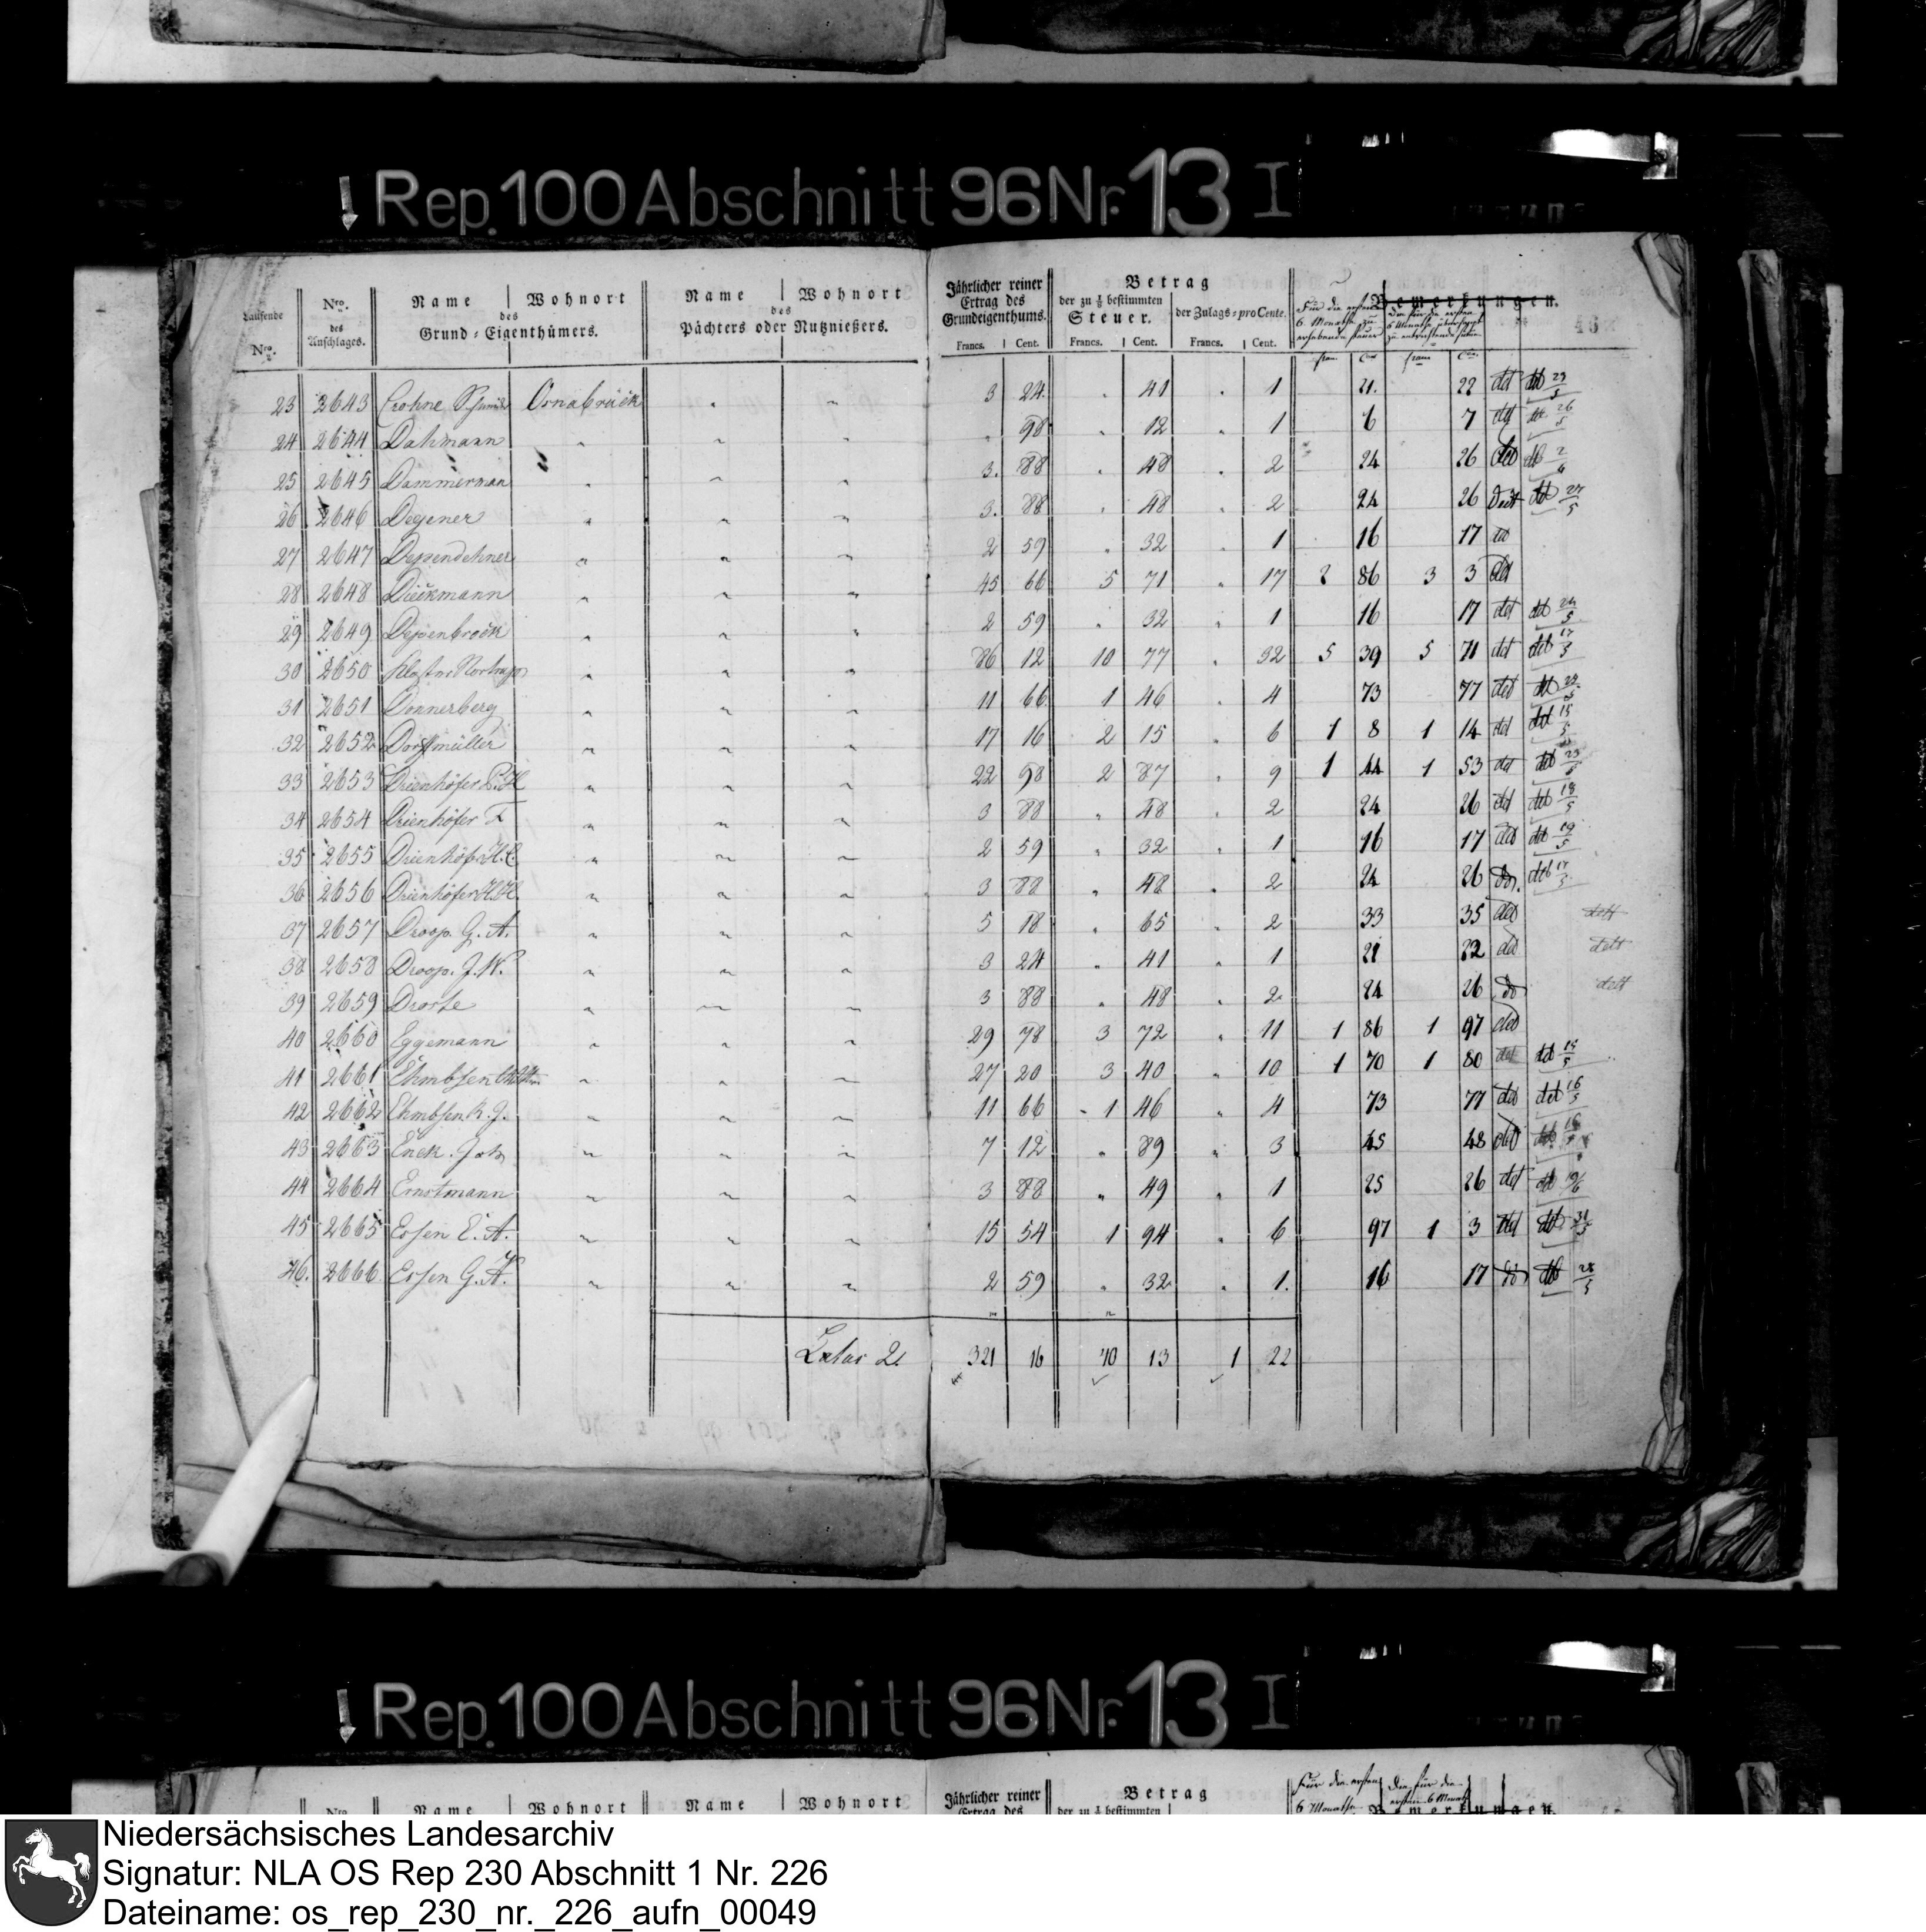 Rep. 100 Abschnitt 96 Nr. 13 I
Laufende Nro.
Nro. des Anschlages.
Name | Wohnort des Grund-Eigenthümers.
Name | Wohnort des Pächters oder Nutznießers.
Jährlicher reiner Ertrag des Grundeigenthums.
Betrag
der zu ⅛ bestimmten Steuer.
der Zulags-pro Cente.
Bemerkungen.
Für die ersten 6 Monathe zu erhebende Steuer
Francs. | Cent. Francs. | Cent. Francs. | Cent.
23 2643 Crohne Osnabrück " " 3 24 " 41 " 1 21. 22 det det 23/5
24 2644 Dahmann " " " " 98 " 12 " 1 6 7 det det 26/5
25 2645 Dammerman " " " 3. 88 " 48 " 2 24 26 det det 2/6
26 2646 Degener " " " 3. 88 " 48 " 2 24 26 dett det 27/5
27 2647 " " " 2 59 " 32 " 1 16 17 det
28 2648 Dieckmann " " " 45 66 5 71 " 17 2 86 3 3 det
29 2649 Depenbrock " " " 2 59 " 32 " 1 16 17 det det 24/5
30 2650 " " " 86 12 10 77 " 32 5 39 5 71 det det 17/5
31 2651 Donnerberg " " " 11 66 1 46 " 4 73 77 det det
32 2652 Dorfmüller " " " 17 16 2 15 " 6 1 8 1 14 det det 15/5
33 2653 Drienhöfer " " " 22 98 2 87 " 9 1 44 1 53 det det 23/5
34 2654 Drienhöfer F " " " 3 88 " 48 " 2 24 26 det det 18/5
35 2655 Drienhöfer H. C. " " " 2 59 " 32 " 1 16 17 det det 19/5
36 2656 Drienhöfer " " " 3 88 " 48 " 2 24 26 do. det 17/5
37 2657 Droop. G. A. " " " 5 18 " 65 " 2 33 35 det dett
38 2658 Droop. J. W. " " " 3 24 " 41 " 1 21 22 det dett
39 2659 Droste " " " 3 88 " 48 " 2 24 26 do dett
40 2660 Eggemann " " " 29 78 3 72 " 11 1 86 1 97 det
41 2661 Ehmbsen " " " 27 20 3 40 " 10 1 70 1 80 det det 15/5
42 2662 Ehmbsen R. J. " " " 11 66 1 46 " 4 73 77 det det 16/5
43 2663 Enck. Joh " " " 7 12 " 89 " 3 45 48 det det
44 2664 Ernstmann " " " 3 88 " 49 " 1 25 26 det det 19/6
45 2665 Essen E. A. " " " 15 54 1 94 " 6 97 1 3 det det 31/5
46. 2666 Essen G. A. " " " 2 59 " 32 " 1. 16 17 do det 28/5
Latus 2. 321 16 40 13 1 22
Rep. 100 Abschnitt 96 Nr. 13 I
Nro. Name | Wohnort Name | Wohnort Jährlicher reiner Ertrag des Betrag der zu ⅛ bestimmten
Für die ersten 6 Monathe
Die für die ersten 6 Monat
Bemerkungen.
Niedersächsisches Landesarchiv
Signatur: NLA OS Rep 230 Abschnitt 1 Nr. 226
Dateiname: os_rep_230_nr._226_aufn_00049